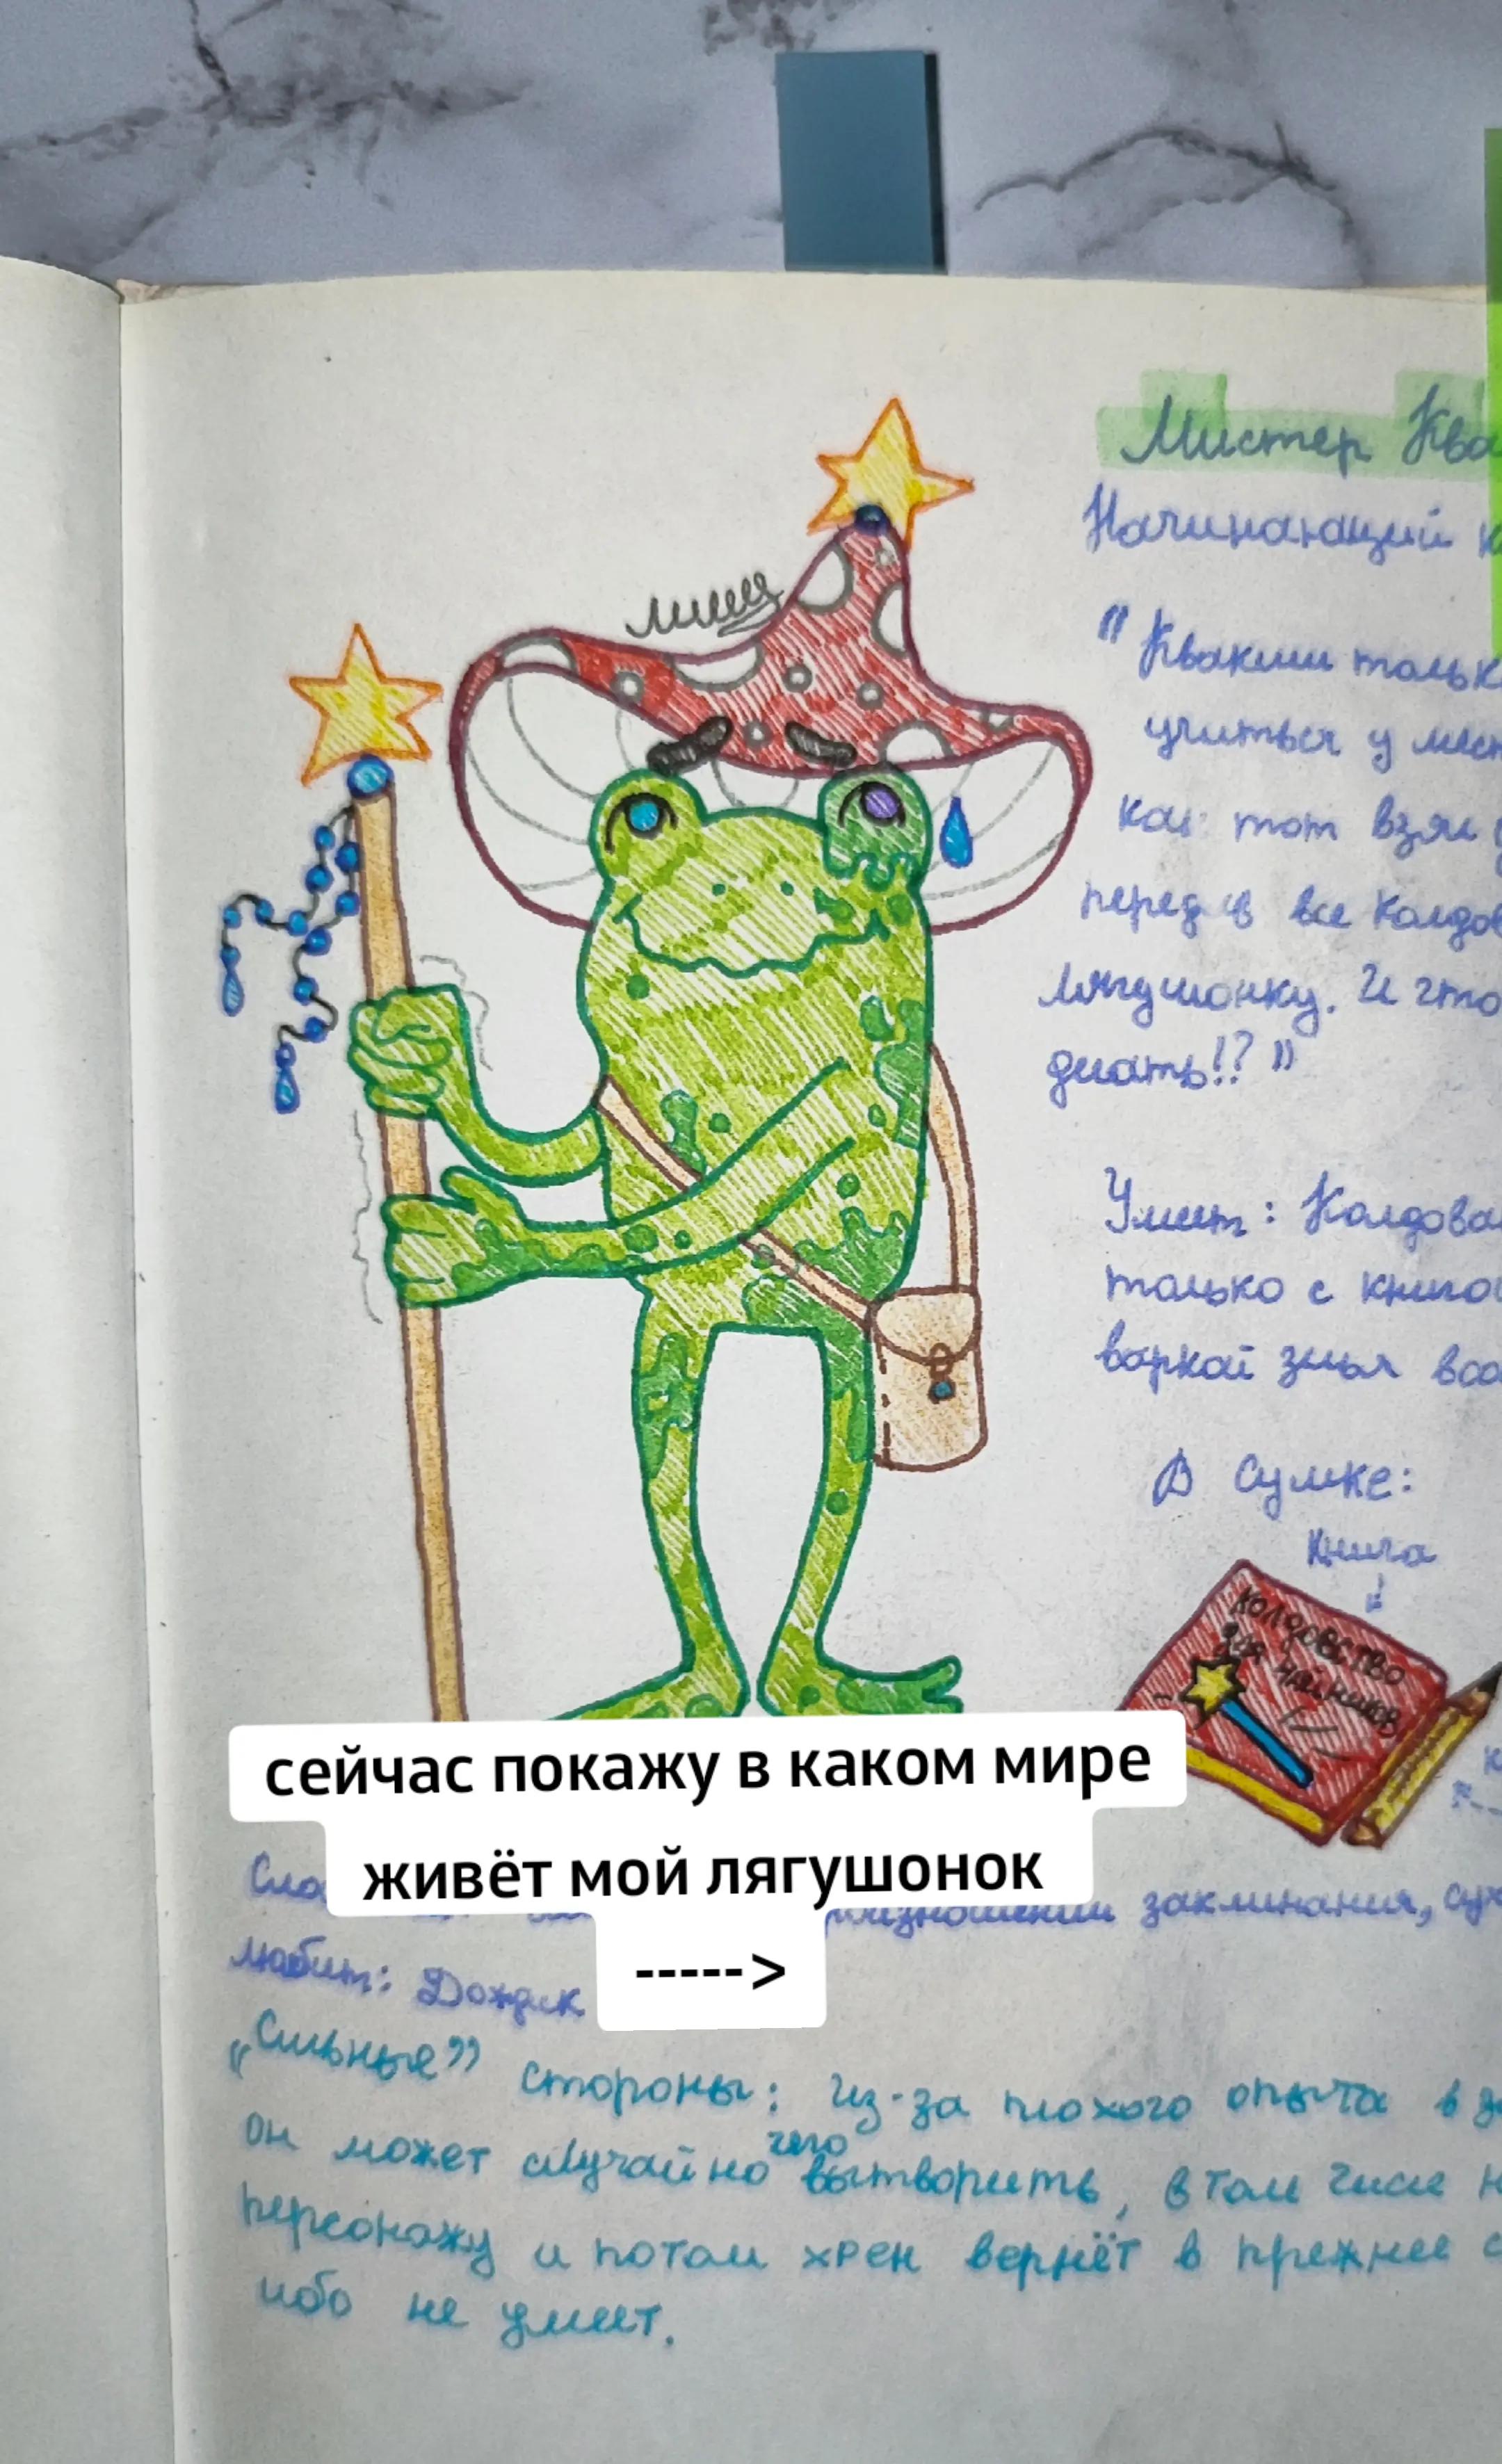 Мистер Ква
Начинающий к
"Квакши тольк
учиться у мест
как тот взял
передав все колдов
лягушонку. И что
делать!?"
Умеет: Колдова
только с книгой
варкой зелья воо
В сумке:
Книга
КОЛДОВСТВО
ДЛЯ ЧАЙНИКОВ
сейчас покажу в каком мире
живёт мой лягушонок
----->
Сла
произношении заклинания, сух
Любит: Дождик
„Сильные" стороны: Из-за плохого опыта в з
он может случайно чего вытворить, в том числе н
персонажу и потом хрен вернёт в прежнее с
ибо не умеет.